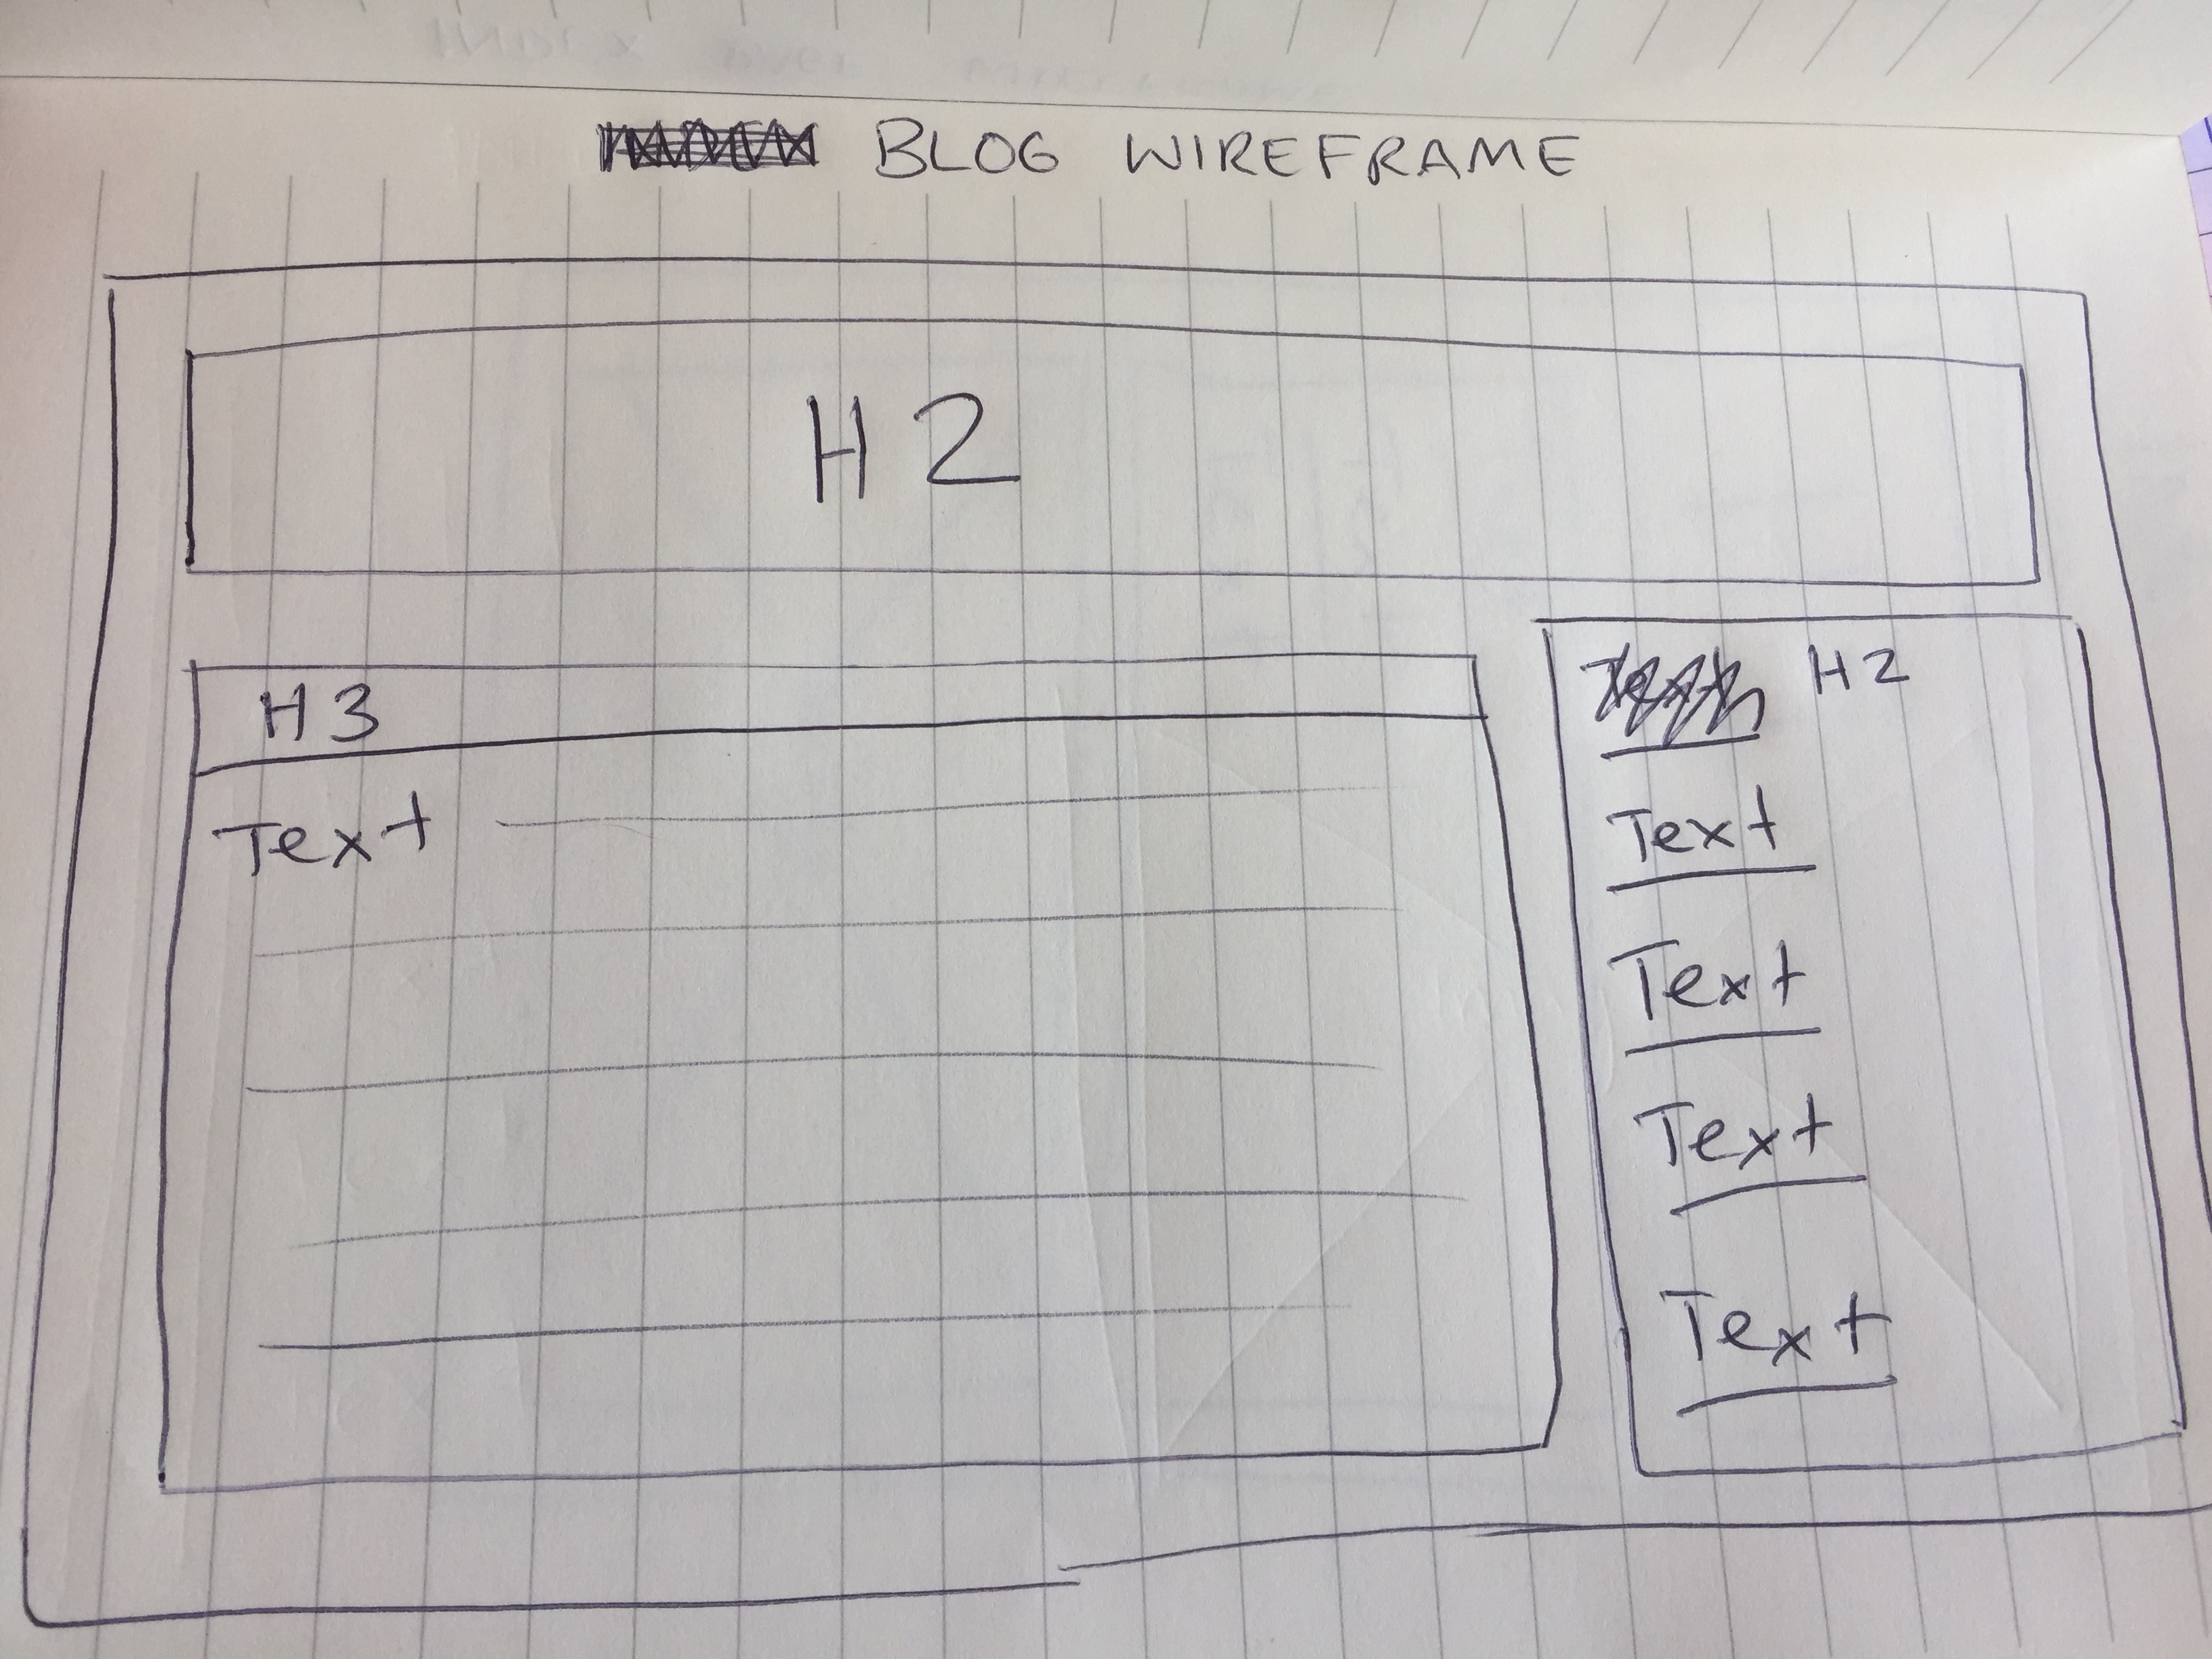 BLOG WIREFRAME
H2
H3
Text
H2
Text
Text
Text
Text